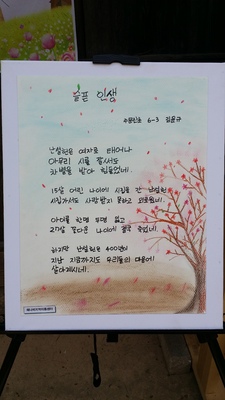 슬픈 인생
6-3
난설헌은 여자로 태어나
아무리 시를 잘써도
차별을 받아 힘들었네.
15살 어린 나이에 시집을 간 난설헌
시집가서도 사랑받지 못하고 외로웠네.
아이를 한명 두명 잃고
27살 꽃다운 나이에 결국 죽었네.
하지만 난설헌은 400년이
지난 지금까지도 우리들의 마음에
살아계시네.